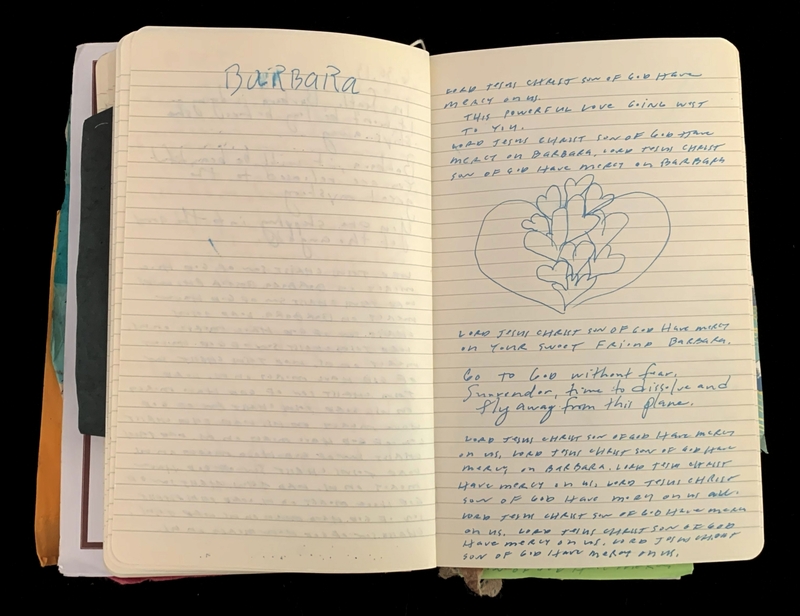 BaRBaRa
LORD JESUS CHRIST SON OF GOD Have
mercy on us.
THIS POWERFUL LOVE GOING WEST
TO YOU.
LORD JESUS CHRIST SON OF GOD Have
mercy on BARBARA. LORD JESUS CHRIST
SON OF GOD Have mercy on BARBARA
LORD JESUS CHRIST SON OF GOD Have mercy
on YOUR SWEET FRIEND BARBARA.
Go to GOD without fear.
Surrender, time to dissolve and
fly away from this plane.
LORD JESUS CHRIST SON OF GOD Have mercy
on us. LORD JESUS CHRIST SON OF GOD Have
mercy on BARBARA. LORD JESUS CHRIST
Have mercy on us. LORD JESUS CHRIST
SON OF GOD Have mercy on us all.
LORD JESUS CHRIST SON OF GOD Have mercy
on us. LORD JESUS CHRIST SON OF GOD
Have mercy on us. LORD JESUS CHRIST
SON OF GOD Have mercy on us.